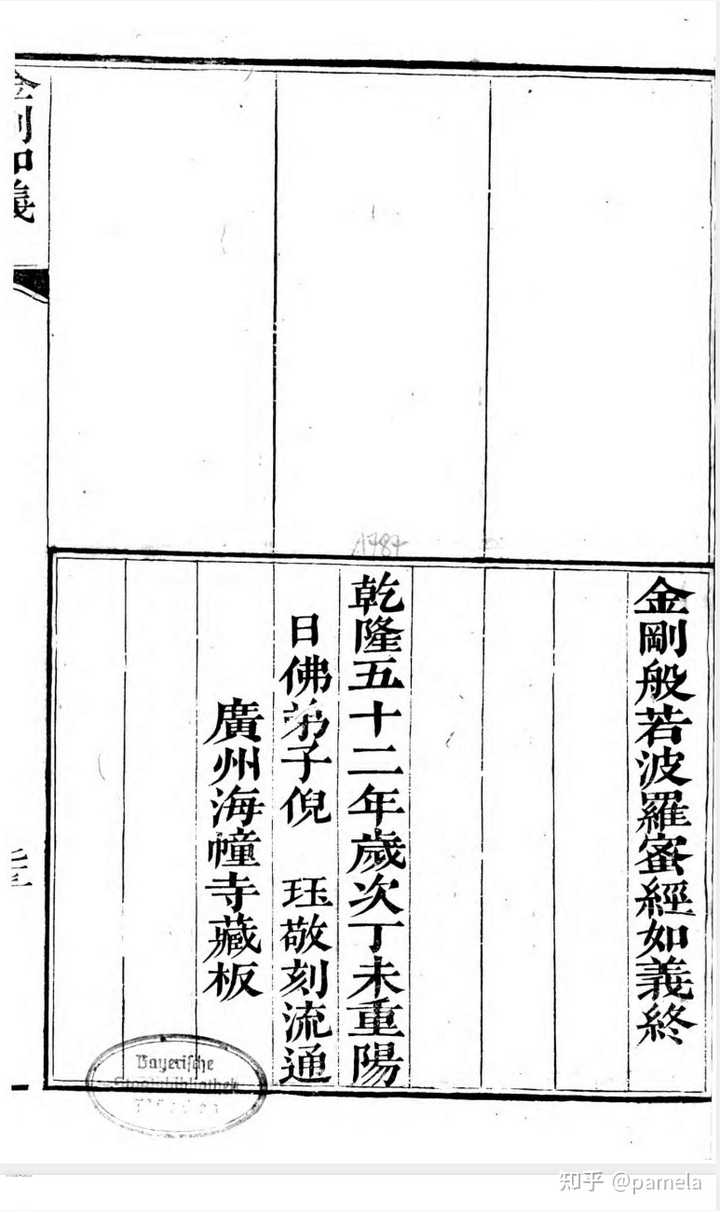 金剛般若波羅蜜經如義終
乾隆五十二年歲次丁未重陽
日佛弟子倪 珏敬刻流通
廣州海幢寺藏板
金剛如義
1787
Bayerische
Staatsbibliothek
知乎 @pamela